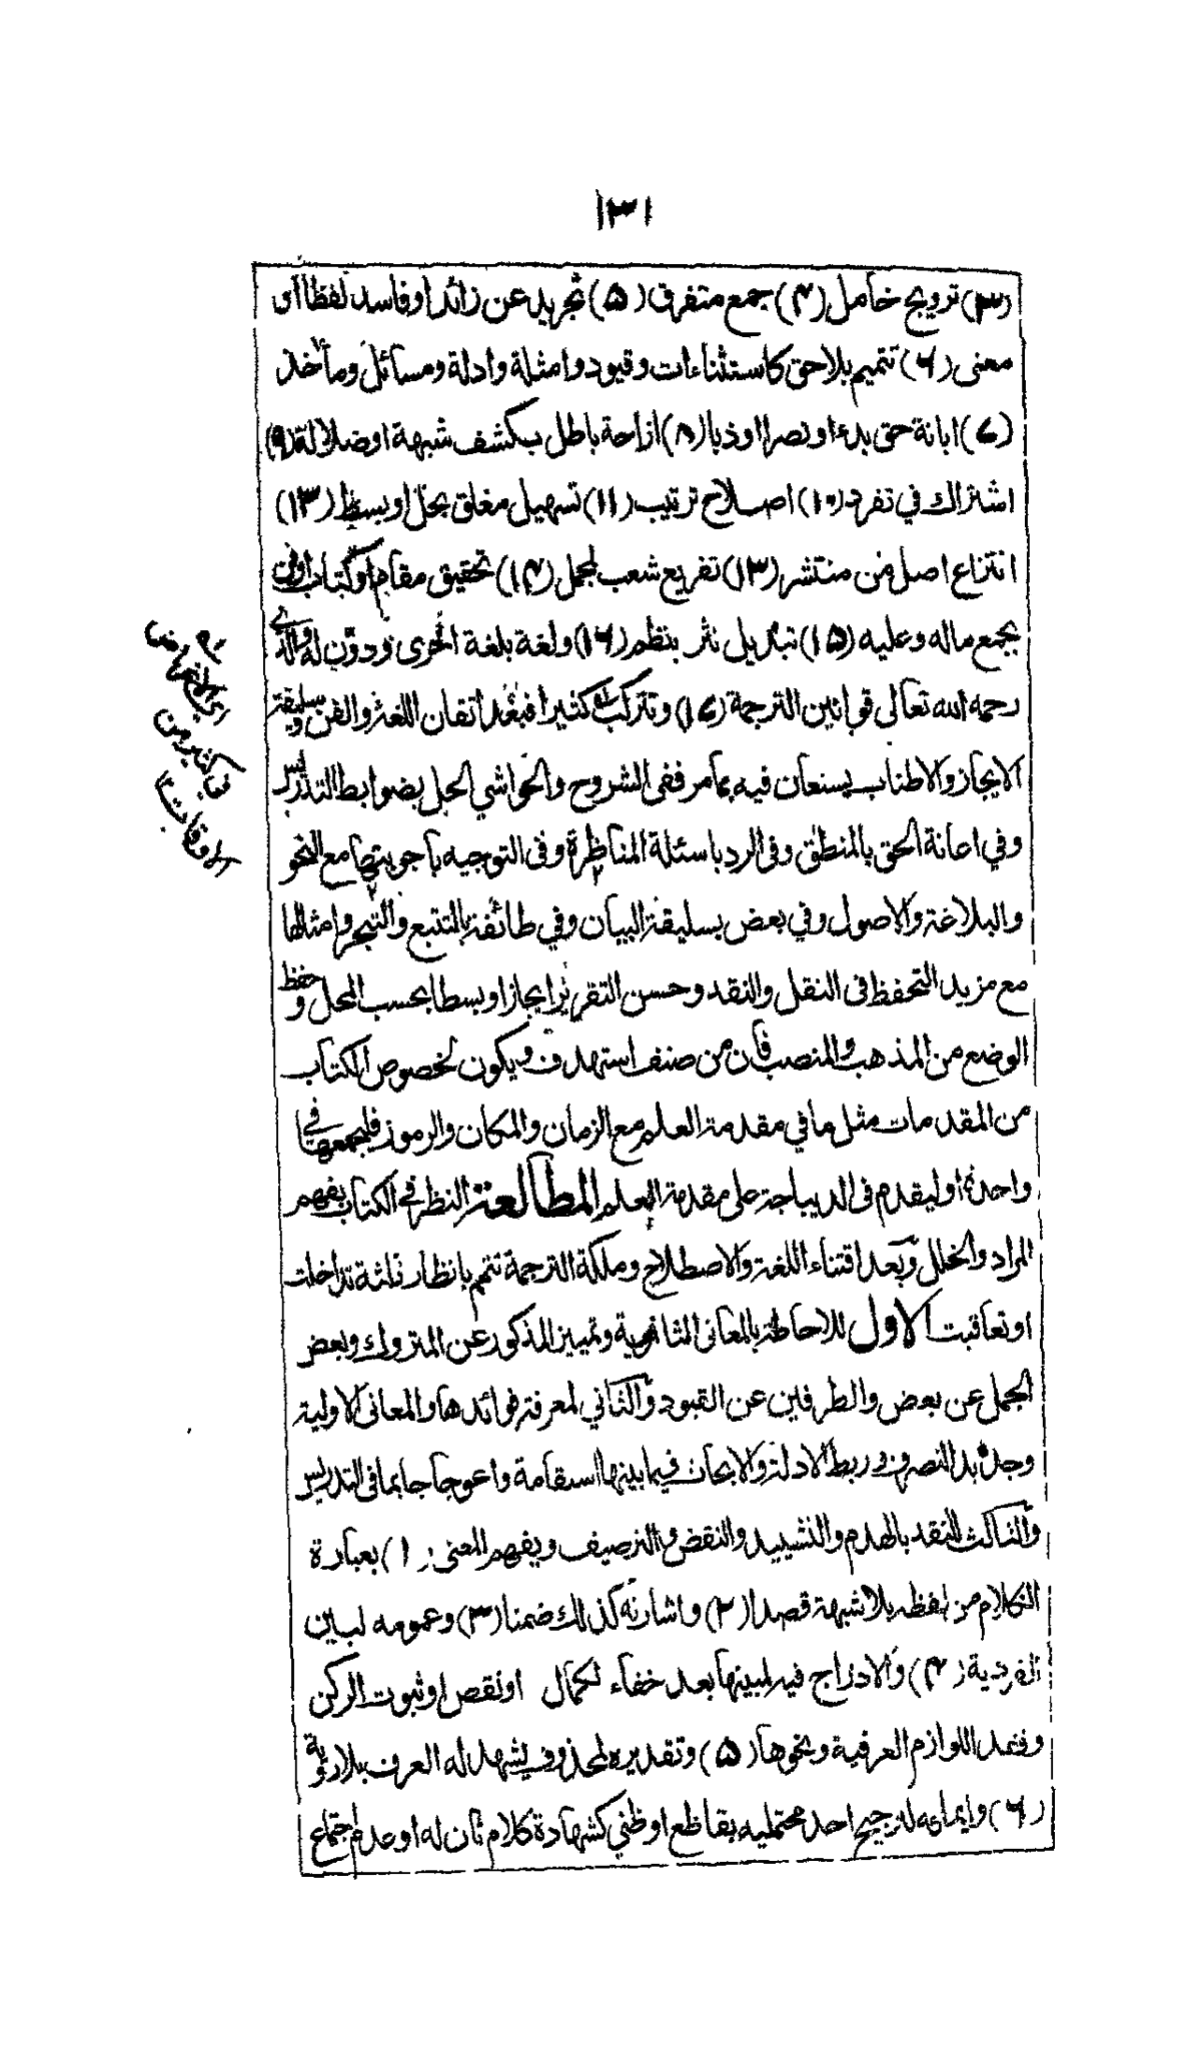 ١٣١
(٣) ترويج خامل (٤) جمع متفرق (٥) تجريد عن زائد او فاسد لفظا او
معنى (٦) تتميم بلاحق كاستثناءات وقيود وامثلة وادلة ومسائل ومآخذ
(٧) ابانة حق بدء او نصرا او ذبا (٨) ازاحة باطل بكشف شبهة او ضلالة (٩)
اشتراك في تفرد (١٠) اصلاح ترتيب (١١) تسهيل مغلق بحل او بسط (١٣)
انتزاع اصل من منتشر (١٣) تفريع شعب لمجمل (١٤) تحقيق مقام او كتاب او فن
بجمع ماله وعليه (١٥) تبديل نثر بنظم (١٦) ولغة بلغة اخرى ودوّن له والدي
رحمه الله تعالى قوانين الترجمة (١٧) وتتركب كثيرا فبعد اتقان اللغة والفن وسليقة
الايجاز والاطناب يستعان فيه بما مر ففى الشروح والحواشي الحل بضوابط التدريس
وفي اعانة الحق بالمنطق وفى الرد باسئلة المناظرة وفى التوجيه باجوبتها مع النحو
والبلاغة والاصول وفي بعض بسليقة البيان وفي طائفة بالتتبع والتبحر وامثالها
مع مزيد التحفظ فى النقل والنقد وحسن التقرير ايجازا وبسطا بحسب المحل وحفظ
الوضع من المذهب والمنصب فان من صنف استهدف ويكون لخصوص الكتاب
من المقدمات مثل ما في مقدمة العلم مع الزمان والمكان والرموز فليجمعها في
واحدة او ليقدم فى الديباجة على مقدمة العلم المطالعة النظر في الكتاب بفهم
المراد والخلل وبعد اقتناء اللغة والاصطلاح وملكة الترجمة تتم بانظار ثلثة تداخلت
او تعاقبت الاول للاحاطة بالمعانى الثانوية وتمييز المذكور عن المتروك وبعض
الجمل عن بعض والطرفين عن القيود والثاني لمعرفة فوائدها والمعانى الاولية
وجذبد التصرف وربط الادلة والابحاث فيما بينها استقامة واعوجاجا بما فى التدريس
والثالث للنقد بالهدم والتشييد والنقض والترصيف ويفهم المعنى (١) بعبارة
الكلام من لفظه بلا شبهة قصدا (٢) واشارته كذلك ضمنا (٣) وعمومه لبين
الفردية (٤) والادراج فيه لمبينها بعد خفاء لكمال او نقص او ثبوت الركن
وفقد اللوازم العرفية ونحوها (٥) وتقديره لمحذوف يشهد له العرف بلا روية
(٦) وايمائه لترجيح احد محتمليه بقاطع او ظني كشهادة كلام ثان له او عدم اجتماع
اي الاغراض
في كثير من
الاوقات ١٢